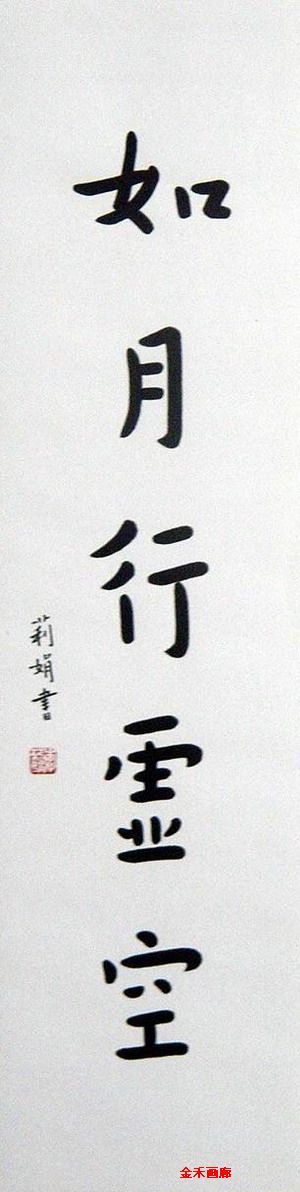 如月行虛空
莉娟書
金禾画廊